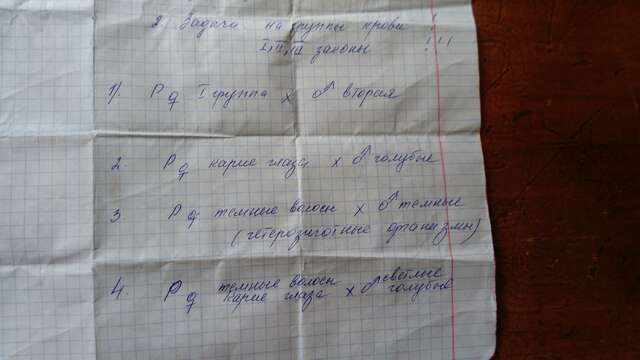 2. Задачи на группы крови !
I, II, III законы !!!
1) P ♀ I группа × ♂ вторая
2. P ♀ карие глаза × ♂ голубые
3. P ♀ темные волосы × ♂ темные
(гетерозиготные организмы)
4. P ♀ темные волосы × ♂ светлые
карие глаза голубые